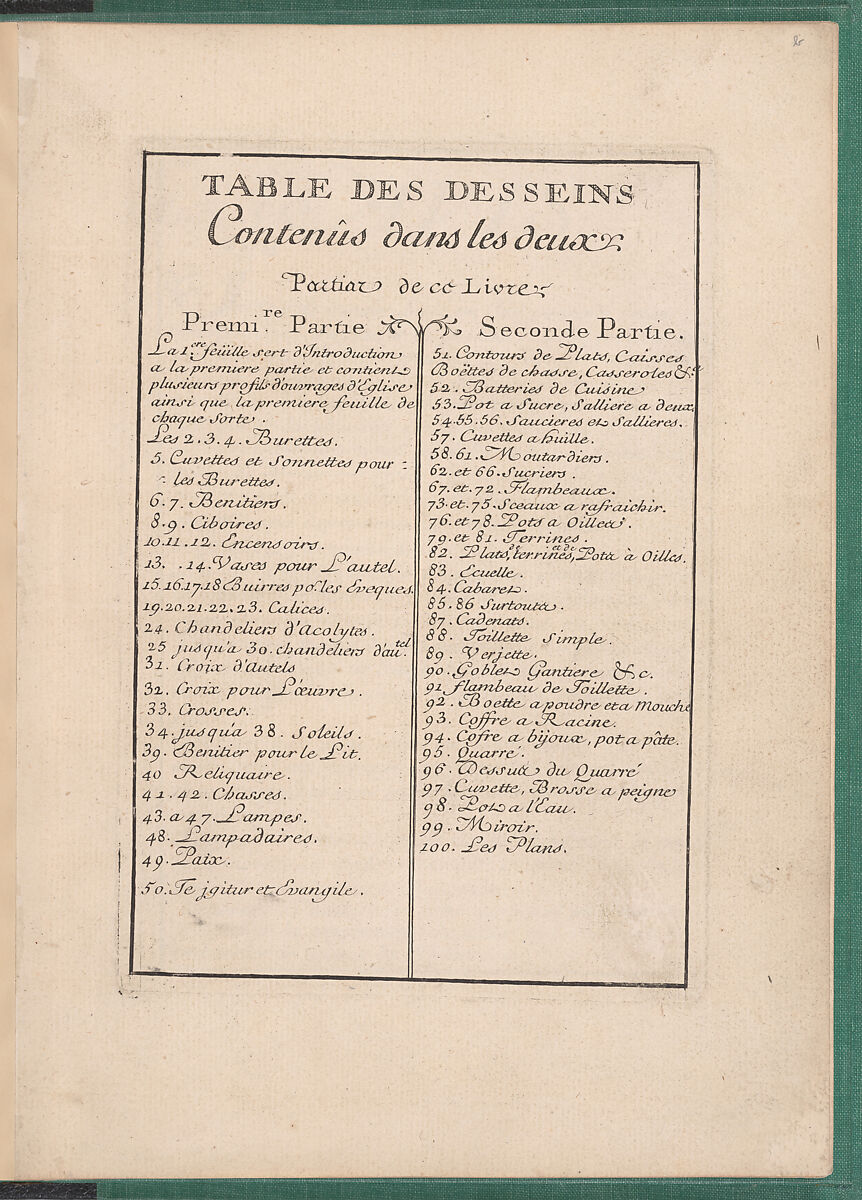 TABLE DES DESSEINS
Contenûs dans les deux
Parties de ce Livre
Premi.re Partie
La 1.ere feüille sert d'Introduction
a la premiere partie et contient
plusieurs profils d'ouvrages d'Eglise
ainsi que la premiere feuille de
chaque sorte.
Les 2. 3. 4. Burettes.
5. Cuvettes et Sonnettes pour
les Burettes.
6. 7. Benitiers.
8. 9. Ciboires.
10. 11. 12. Encensoirs.
13. 14. Vases pour L'autel.
15. 16. 17. 18 Buirres po.r les Eveques.
19. 20. 21. 22. 23. Calices.
24. Chandeliers d'Acolytes.
25 jusqu'a 30. chandeliers d'autel.
31. Croix d'autels
32. Croix pour L'œuvre.
33. Crosses.
34. jusqu'a 38. Soleils.
39. Benitier pour le Lit.
40 Reliquaire.
41. 42. Chasses.
43. a 47. Lampes.
48. Lampadaires.
49. Paix.
50. Te jgitur et Evangile.
Seconde Partie.
51. Contours de Plats, Caisses
Boëttes de chasse, Casseroles &c.
52. Batteries de Cuisine
53. Pot a Sucre, Salliere a deux
54. 55. 56. Saucieres et Sallieres.
57. Cuvettes a huille.
58. 61. Moutardiers.
62. et 66. Sucriers.
67. et. 72. Flambeaux.
73. et. 75. Sceaux a rafraichir.
76. et 78. Pots a Oilles.
79. et 81. Terrines.
82. Plats, et terrines, et de Pots à Oilles.
83. Ecuelle.
84. Cabaret.
85. 86 Surtouts.
87. Cadenats.
88. Toillette Simple.
89. Verjette.
90. Goblets Gantiere &c.
91. flambeau de Toillette.
92. Boette a poudre et a Mouche
93. Coffre a Racine.
94. Cofre a bijoux, pot a pâte.
95. Quarré.
96. Dessus du Quarré
97. Cuvette, Brosse a peigne
98. Pot a l'Eau.
99. Miroir.
100. Les Plans.